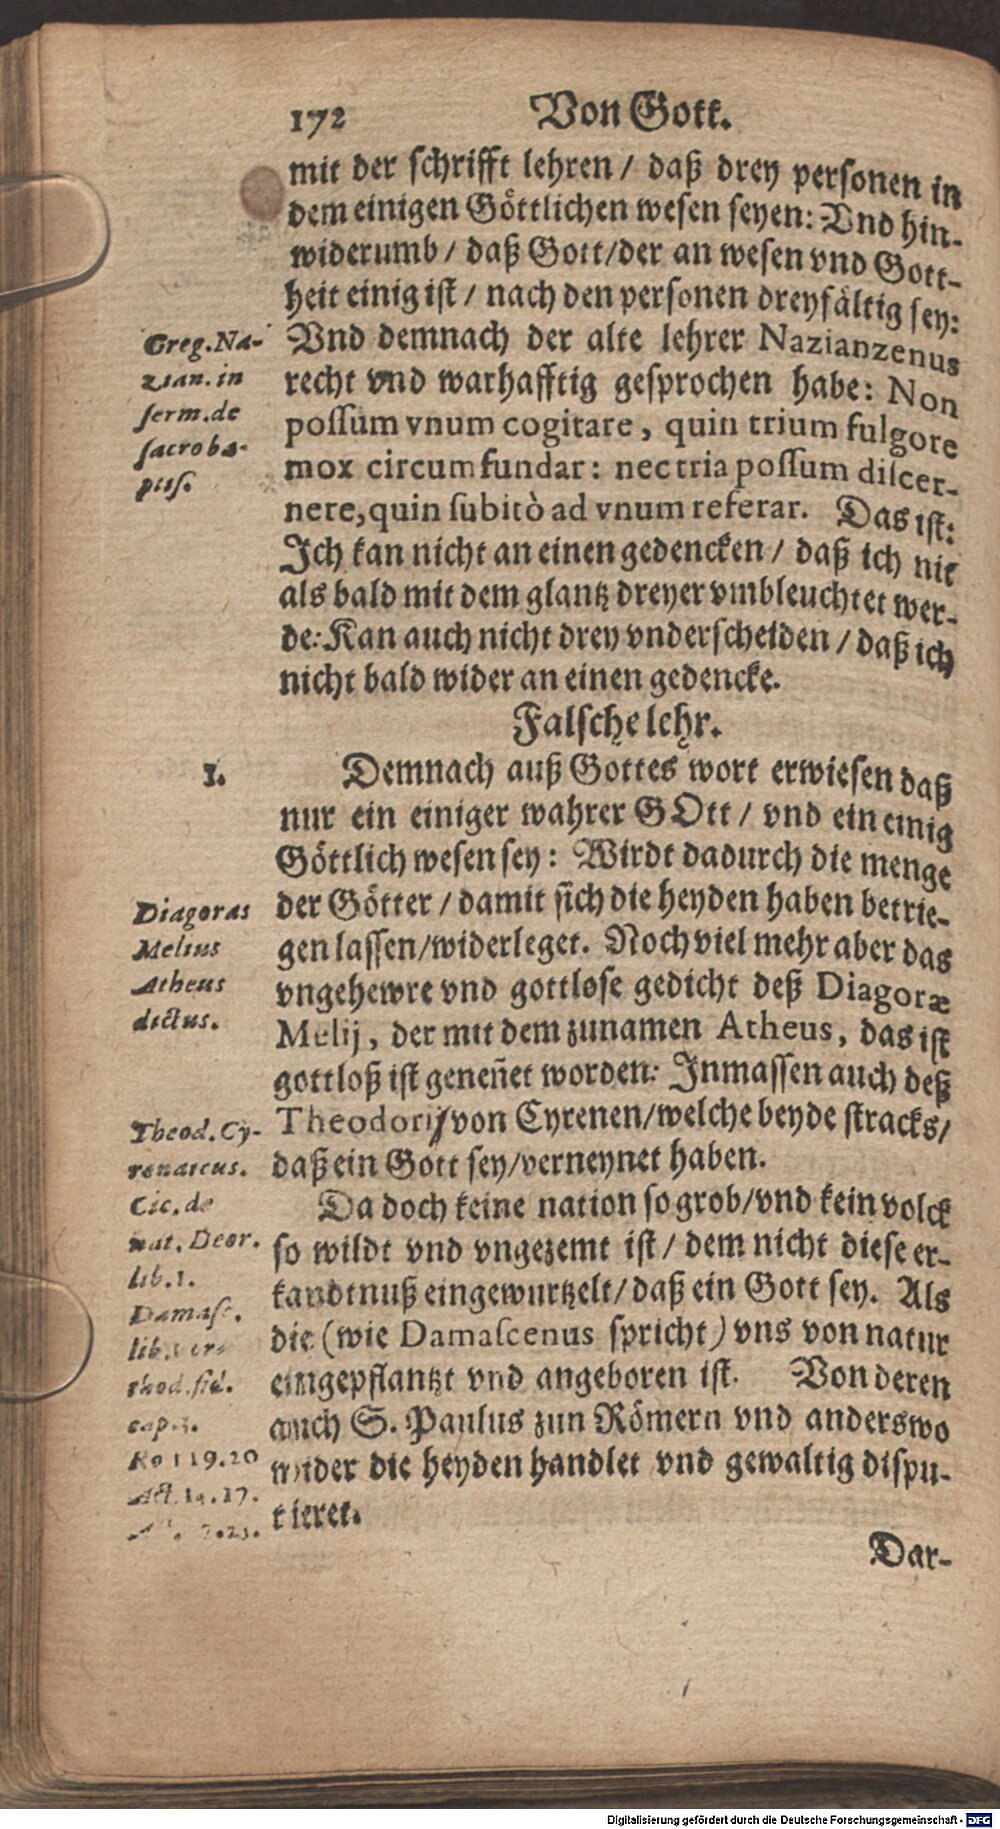 172 Von Gott.
mit der schrifft lehren / daß drey personen in
dem einigen Göttlichen wesen seyen: Vnd hin-
widerumb / daß Gott/der an wesen vnd Gott-
heit einig ist / nach den personen dreyfältig sey:
Vnd demnach der alte lehrer Nazianzenus
recht vnd warhafftig gesprochen habe: Non
possum vnum cogitare, quin trium fulgore
mox circumfundar: nec tria possum discer-
nere, quin subitò ad vnum referar. Das ist:
Ich kan nicht an einen gedencken / daß ich nit
als bald mit dem glantz dreyer vmbleuchtet wer-
de: Kan auch nicht drey vnderscheiden / daß ich
nicht bald wider an einen gedencke.
Greg. Na-
zian. in
serm. de
sacro ba-
ptis.
Falsche lehr.
1. Demnach auß Gottes wort erwiesen daß
nur ein einiger wahrer GOtt / vnd ein einig
Göttlich wesen sey: Wirdt dadurch die menge
der Götter / damit sich die heyden haben betrie-
gen lassen/widerleget. Noch viel mehr aber das
vngehewre vnd gottlose gedicht deß Diagoræ
Melij, der mit dem zunamen Atheus, das ist
gottloß ist geneñet worden: Inmassen auch deß
Theodorij/von Cyrenen/welche beyde stracks/
daß ein Gott sey/verneynet haben.
Diagoras
Melius
Atheus
dictus.
Da doch keine nation so grob/vnd kein volck
so wildt vnd vngezemt ist / dem nicht diese er-
kandtnuß eingewurtzelt/daß ein Gott sey. Als
die (wie Damascenus spricht) vns von natur
eingepflantzt vnd angeboren ist. Von deren
auch S. Paulus zun Römern vnd anderswo
wider die heyden handlet vnd gewaltig dispu-
tieret.
Theod. Cy-
renaicus.
Cic. de
nat. Deor.
lib. 1.
Damasc.
lib. 1 or-
thod. fid.
cap.
Ro 1 19.20
Act. 14. 17.
Dar-
Digitalisierung gefördert durch die Deutsche Forschungsgemeinschaft - DFG